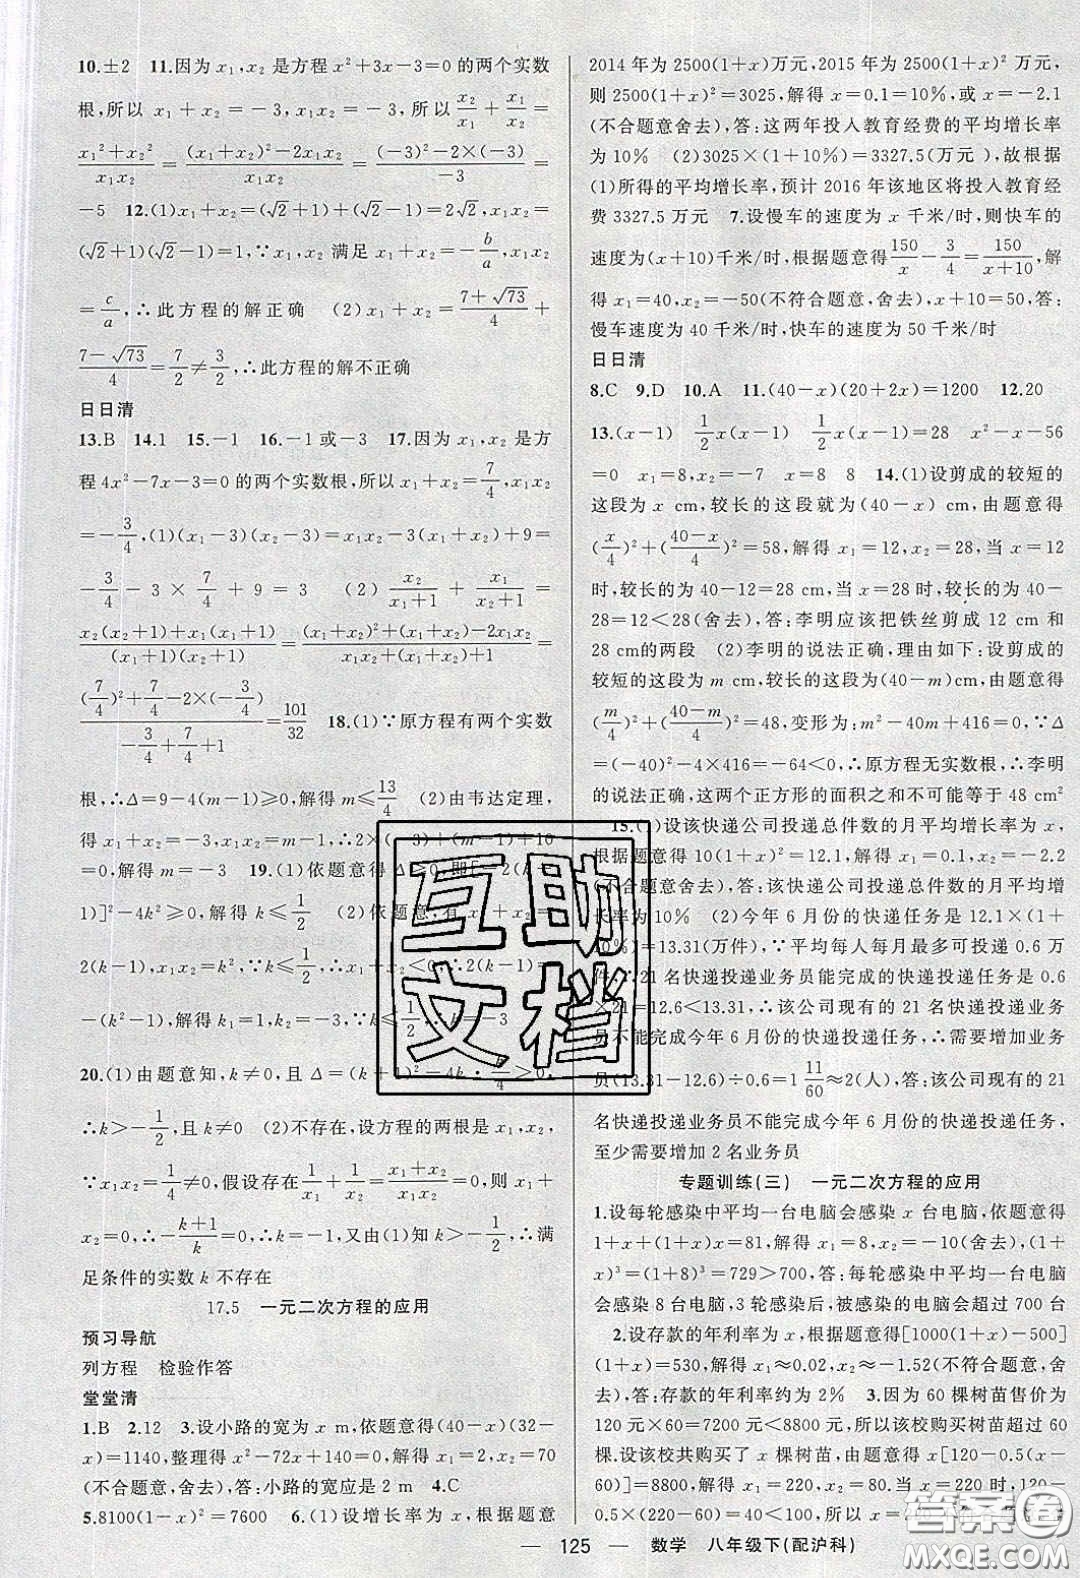 10.±2　11.因为 x₁,x₂ 是方程 x²+3x-3=0 的两个实数
根,所以 x₁+x₂=-3,x₁x₂=-3,所以 x₂/x₁ + x₁/x₂ =
(x₁²+x₂²)/(x₁x₂) = ((x₁+x₂)²-2x₁x₂)/(x₁x₂) = ((-3)²-2×(-3))/(-3) =
-5　12.(1)x₁+x₂=(√2+1)+(√2-1)=2√2,x₁x₂=
(√2+1)(√2-1)=1,∵x₁,x₂ 满足 x₁+x₂=-b/a,x₁x₂
=c/a,∴此方程的解正确　(2)x₁+x₂=(7+√73)/4+
(7-√73)/4=7/2≠3/2,∴此方程的解不正确
日日清
13.B　14.1　15.-1　16.-1 或-3　17.因为 x₁,x₂ 是方
程 4x²-7x-3=0 的两个实数根,所以 x₁+x₂=7/4,x₁x₂
=-3/4,(1)(x₁-3)(x₂-3)=x₁x₂-3(x₁+x₂)+9=
-3/4-3×7/4+9=3　(2) x₂/(x₁+1) + x₁/(x₂+1) =
(x₂(x₂+1)+x₁(x₁+1))/((x₁+1)(x₂+1)) = ((x₁+x₂)²+(x₁+x₂)-2x₁x₂)/(x₁x₂+(x₁+x₂)+1) =
((7/4)²+7/4-2×(-3/4))/(-3/4+7/4+1)=101/32　18.(1)∵原方程有两个实数
根,∴Δ=9-4(m-1)≥0,解得 m≤13/4　(2)由韦达定理,
得 x₁+x₂=-3,x₁x₂=m-1,∴2×(-3)+(m-1)+10
=0,解得 m=-3　19.(1)依题意得 Δ≥0,即[-2(k-
1)]²-4k²≥0,解得 k≤1/2　(2)依题意,有 x₁+x₂=
2(k-1),x₁x₂=k²,∵k≤1/2,∴x₁+x₂<0,∴2(k-1)=
-(k²-1),解得 k₁=1,k₂=-3,∵k≤1/2,∴k=-3
20.(1)由题意知,k≠0,且 Δ=(k+1)²-4k·k/4>0,
∴k>-1/2,且 k≠0　(2)不存在,设方程的两根是 x₁,x₂,
∵x₁x₂=1/4≠0,假设存在 1/x₁+1/x₂=(x₁+x₂)/(x₁x₂)=0,则 x₁+
x₂=0,∴-(k+1)/k=0,∴k=-1,又由(1)知:k>-1/2,∴满
足条件的实数 k 不存在
17.5　一元二次方程的应用
预习导航
列方程　检验作答
堂堂清
1.B　2.12　3.设小路的宽为 x m,依题意得(40-x)(32-
x)=1140,整理得 x²-72x+140=0,解得 x₁=2,x₂=70
(不合题意,舍去),答:小路的宽应是 2 m　4.C
5.8100(1-x)²=7600　6.(1)设增长率为 x,根据题意
2014 年为 2500(1+x)万元,2015 年为 2500(1+x)² 万元,
则 2500(1+x)²=3025,解得 x=0.1=10%,或 x=-2.1
(不合题意舍去),答:这两年投入教育经费的平均增长率
为 10%　(2)3025×(1+10%)=3327.5(万元),故根据
(1)所得的平均增长率,预计 2016 年该地区将投入教育经
费 3327.5 万元　7.设慢车的速度为 x 千米/时,则快车的
速度为(x+10)千米/时,根据题意得150/x-3/4=150/(x+10),解
得 x₁=40,x₂=-50(不符合题意,舍去),x+10=50,答:
慢车速度为 40 千米/时,快车的速度为 50 千米/时
日日清
8.C　9.D　10.A　11.(40-x)(20+2x)=1200　12.20
13.(x-1)　1/2x(x-1)　1/2x(x-1)=28　x²-x-56
=0　x₁=8,x₂=-7　x=8　8　14.(1)设剪成的较短的
这段为 x cm,较长的这段就为(40-x) cm,由题意得
(x/4)²+((40-x)/4)²=58,解得 x₁=12,x₂=28,当 x=12
时,较长的为 40-12=28 cm,当 x=28 时,较长的为 40-
28=12<28(舍去),答:李明应该把铁丝剪成 12 cm 和
28 cm的两段　(2)李明的说法正确,理由如下:设剪成的
较短的这段为 m cm,较长的这段就为(40-m)cm,由题意得
(m/4)²+((40-m)/4)²=48,变形为:m²-40m+416=0,∵Δ
=(-40)²-4×416=-64<0,∴原方程无实数根,∴李明
的说法正确,这两个正方形的面积之和不可能等于 48 cm²
15.(1)设该快递公司投递总件数的月平均增长率为 x,
根据题意得 10(1+x)²=12.1,解得 x₁=0.1,x₂=-2.2
(不合题意舍去),答:该快递公司投递总件数的月平均增
长率为 10%　(2)今年 6 月份的快递任务是 12.1×(1+
10%)=13.31(万件),∵平均每人每月最多可投递 0.6 万
件,∴21 名快递投递业务员能完成的快递投递任务是 0.6
×21=12.6<13.31,∴该公司现有的 21 名快递投递业务
员不能完成今年 6 月份的快递投递任务,∴需要增加业务
员(13.31-12.6)÷0.6=1 11/60≈2(人),答:该公司现有的 21
名快递投递业务员不能完成今年 6 月份的快递投递任务,
至少需要增加 2 名业务员
专题训练(三)　一元二次方程的应用
1.设每轮感染中平均一台电脑会感染 x 台电脑,依题意得
1+x+(1+x)x=81,解得 x₁=8,x₂=-10(舍去),(1+
x)³=(1+8)³=729>700,答:每轮感染中平均一台电脑
会感染 8 台电脑,3 轮感染后,被感染的电脑会超过 700 台
2.设存款的年利率为 x,根据题意得[1000(1+x)-500]
(1+x)=530,解得 x₁≈0.02,x₂≈-1.52(不符合题意,舍
去),答:存款的年利率约为 2%　3.因为 60 棵树苗售价为
120 元×60=7200 元<8800 元,所以该校购买树苗超过 60
棵.设该校共购买了 x 棵树苗,由题意得 x[120-0.5(x-
60)]=8800,解得 x₁=220,x₂=80,当 x=220 时,120-
0.5×(220-60)=40<100,所以 x=
125　数学　八年级下(配沪科)
互助
文档
答案圈
MXQE.COM